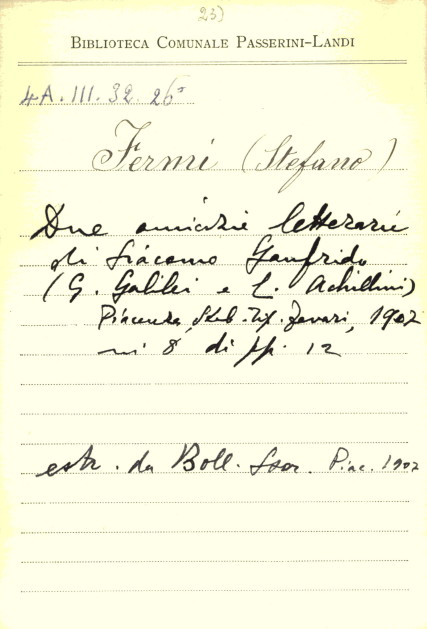 23)
BIBLIOTECA COMUNALE PASSERINI-LANDI
4A.III.32.26
Fermi (Stefano)
Due amicizie letterarie
di Giacomo Gaufrido
(G. Galilei e C. Achillini)
Piacenza, Stab. Tip. Favari, 1907
in 8 di pp. 12
estr. da Boll. Stor. Piac. 1907